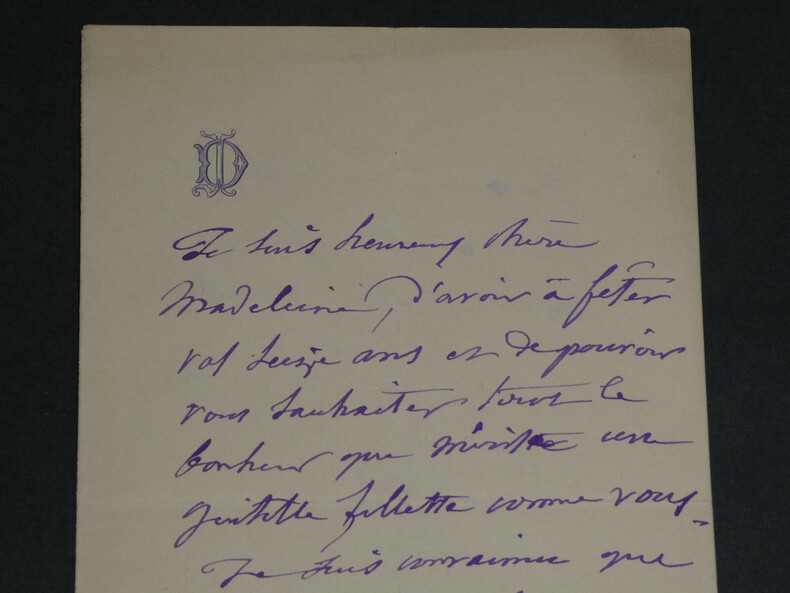 Je suis heureux chère
Madeleine, d'avoir à fêter
vos seize ans et de pouvoir
vous souhaiter tout le
bonheur que mérite une
gentille fillette comme vous-
Je suis convaincue que